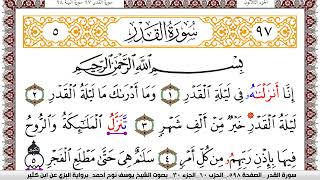 الجزء الثلاثون
٩٧ سُورَةُ القَدْرِ ٥
بِسْمِ اللَّهِ الرَّحْمَٰنِ الرَّحِيمِ
إِنَّا أَنزَلْنَٰهُ فِى لَيْلَةِ ٱلْقَدْرِ ١ وَمَا أَدْرَىٰكَ مَا لَيْلَةُ ٱلْقَدْرِ ٢
لَيْلَةُ ٱلْقَدْرِ خَيْرٌ مِّنْ أَلْفِ شَهْرٍ ٣ تَنَزَّلُ ٱلْمَلَٰٓئِكَةُ وَٱلرُّوحُ
فِيهَا بِإِذْنِ رَبِّهِمُ مِّن كُلِّ أَمْرٍ ٤ سَلَٰمٌ هِىَ حَتَّىٰ مَطْلَعِ ٱلْفَجْرِ ٥
سورة القدر الصفحة ٥٩٨ الحزب ٦٠ الجزء ٣٠ بصوت الشيخ يوسف نوح أحمد برواية البزي عن ابن كثير